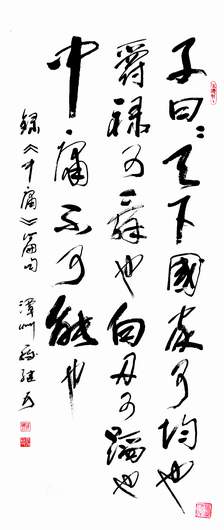 子曰：天下國家可均也
爵禄可辭也白刃可蹈也
中庸不可能也
録《中庸》篇句 潭州